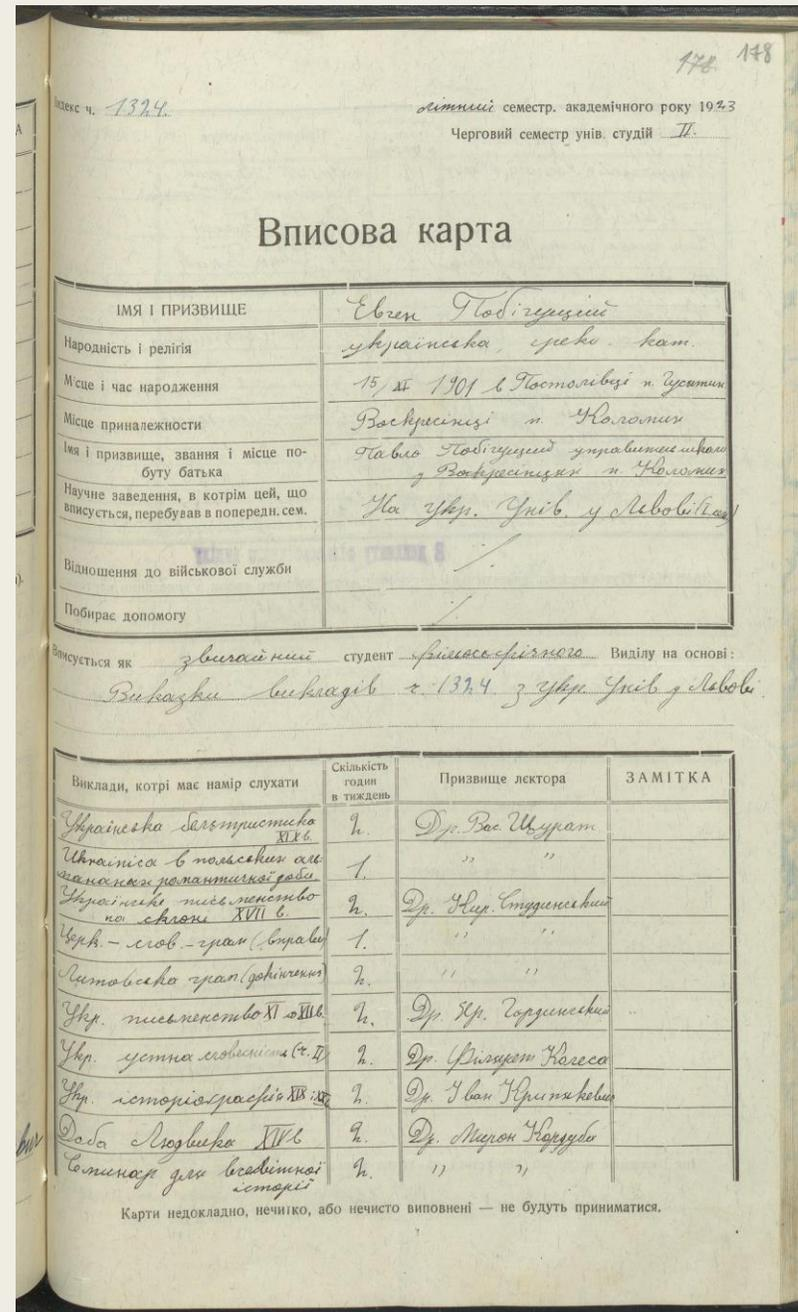 178. 178
Індекс ч. 1324.
літний семестр. академічного року 1923
Черговий семестр унів. студій II.
Вписова карта
ІМЯ І ПРИЗВИЩЕ Евген Побігущий
Народність і релігія українська, греко. кат.
Місце і час народження 15/XI 1901 в Постолівці п. Гусятин
Місце приналежности Воскресінці п. Коломия
Імя і призвище, звання і місце по-
буту батька
Павло Побігущий управитель школи
у Воскресінцях п. Коломия
Научне заведення, в котрім цей, що
вписується, перебував в попередн. сем.
На Укр. Унів. у Львові
Відношення до військової служби ٪
Побирає допомогу ٪
Вписується як звичайний студент фільософічного Виділу на основі:
Виказки викладів ч. 1324 з Укр. Унів у Львові.
Виклади, котрі має намір слухати
Скількість
годин
в тиждень
Призвище лєктора
ЗАМІТКА
Українська белєтристика
XIX в. 2. Др. Вас. Щурат
Ukrainica в польських аль-
манахах романтичної доби 1. " "
Українське письменство
на склоні XVII в. 2. Др. Кир. Студинський
Церк. – слов. – грам (вправи) 1. " "
Литовська грам (докінчення) 2. " "
Укр. письменство XI до XIII в. 2. Др. Яр. Гординський
Укр. устна словесність (ч. II) 2. Др. Філярет Колеса
Укр. історіографія XIX і XX 2. Др. Іван Крипякевич
Доба Людвика XIV 2. Др. Мирон Кордуба
Семинар для всесвітної
історії 2. " "
Карти недокладно, нечитко, або нечисто виповнені — не будуть приниматися.